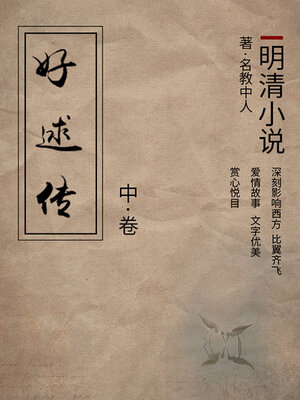 明清小说
著·名教中人
深刻影响西方 比翼齐飞
爱情故事 文字优美
赏心悦目
中·卷
好逑传